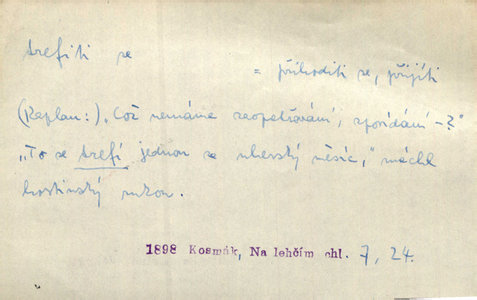 trefiti se
= přihoditi se, přijíti
(Kaplan:) „Což nemáme zaopatřování, zpovídání –?"
„To se trefí jednou za uherský měsíc," máchl
hostinský rukou.
1898 Kosmák, Na lehčím chl. 7, 24.